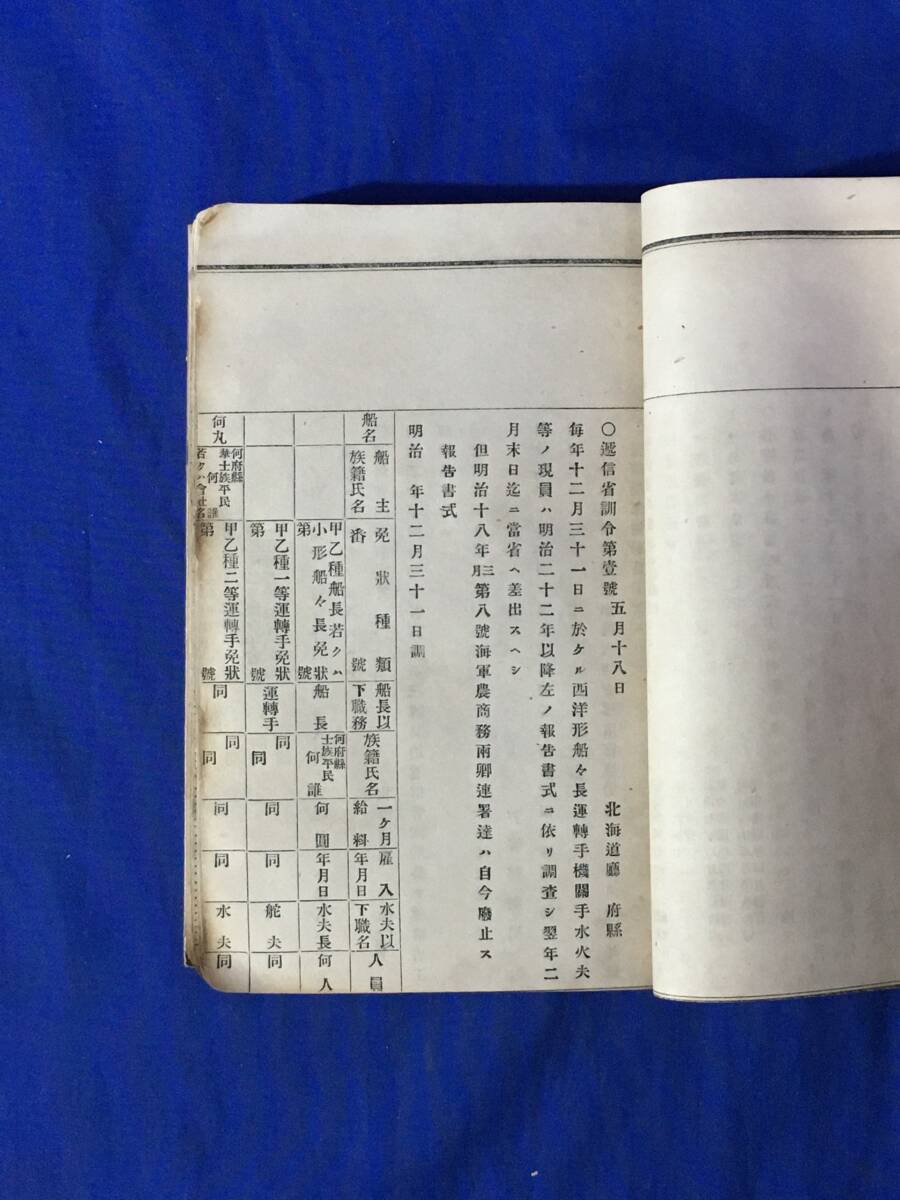 〇遞信省訓令第壹號 五月十八日 北海道廳 府縣
每年十二月三十一日ニ於ケル西洋形船々長運轉手機關手水火夫
等ノ現員ハ明治二十二年以降左ノ報告書式ニ依リ調査シ翌年二
月末日迄ニ當省ヘ差出スヘシ
但明治十八年三月第八號海軍農商務兩卿連署達ハ自今廢止ス
報告書式
明治 年十二月三十一日調
船名
船主族籍氏名
免狀種類番號
船長以下職務
族籍氏名
一ケ月給料
雇入年月日
水夫以下職名
人員
甲乙種船長若クハ小形船々長免狀第 號
船長
何府縣士族平民何誰
何圓
年月日
水夫長
何人
甲乙種一等運轉手免狀第 號
運轉手
同同
同
同
舵夫
同
何丸
何府縣華士族平民何誰若クハ會社名
甲乙種二等運轉手免狀第 號
同
同同
同
同
水夫
同